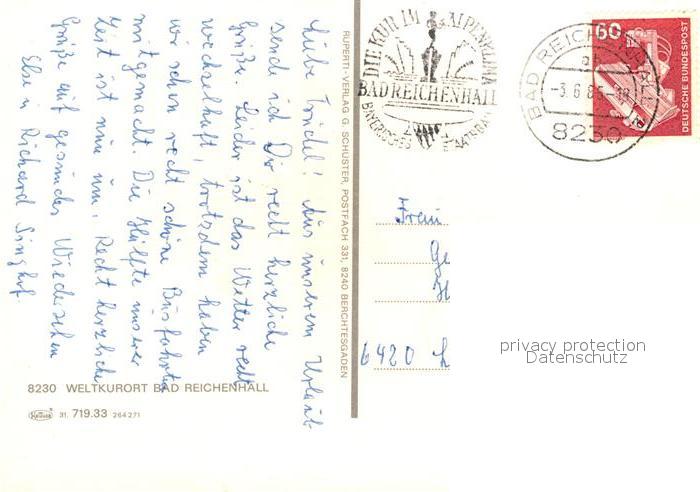 Liebe Trudel! Aus unserem Urlaub
sende ich Dir recht herzliche
Grüße. Leider ist das Wetter recht
wechselhaft, trotzdem haben
wir schon recht schöne Busfahrten
mitgemacht. Die Hälfte unserer
Zeit ist nun um. Recht herzliche
Grüße auf gesundes Wiedersehen
Else u. Richard
RUPERTI-VERLAG G. SCHUSTER, POSTFACH 331, 8240 BERCHTESGADEN
DIE KUR IM ALPENKLIMA
BAD REICHENHALL
BAYERISCHES STAATSBAD
BAD REICHENHALL
-3.6.85-18
8230
60
DEUTSCHE BUNDESPOST
Frau
Ge
H
6420 L
privacy protection
Datenschutz
8230 WELTKURORT BAD REICHENHALL
31. 719.33 264271